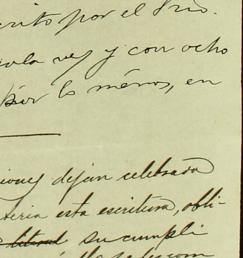 crito por el Srio.
sola vez y con ocho
por lo ménos, en
ciones dejan celebrada
teria esta escritura, obli-
su cumpli